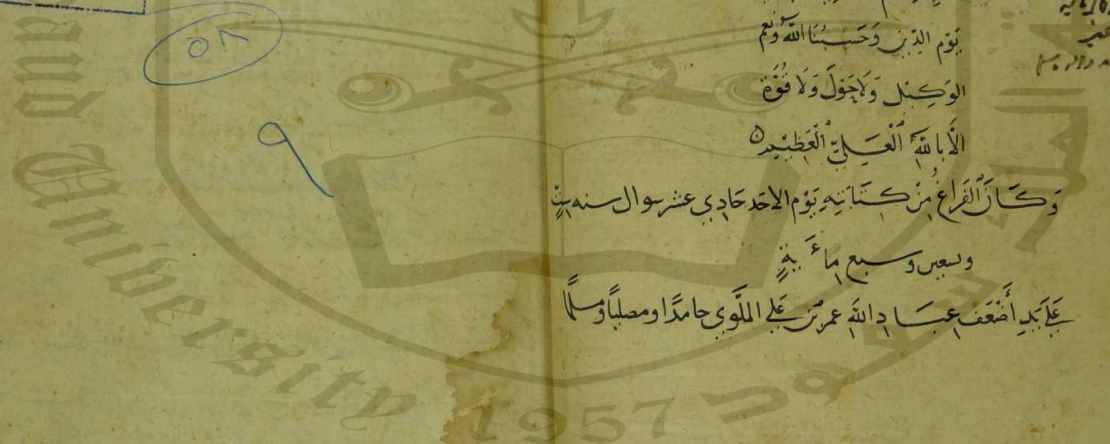 يَوْم الدِّين وَحَسْبُنَا اللَّهُ وَنِعْمَ
الوَكِيْل وَلَا حَوْلَ وَلَا قُوَّةَ
اِلَّا بِاللَّهِ الْعَلِيِّ الْعَظِيْمِ
وَكَانَ الفَرَاغُ مِنْ كِتَابَتِهِ يَوْم الاحَد حَادِي عشر سوال سنه سِتّ
وسبع مائة
عَلَى يَدِ أَضْعَفِ عِبَادِ اللَّه عمر بن عَلِي الملَّوي حامدًا ومصليًا ومسلمًا
٥٨
and
University
1957